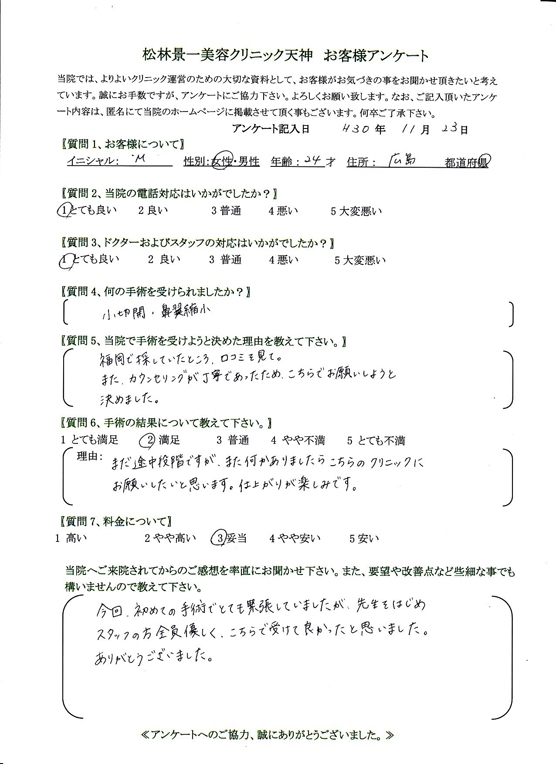 松林景一美容クリニック天神 お客様アンケート
当院では、よりよいクリニック運営のための大切な資料として、お客様がお気づきの事をお聞かせ頂きたいと考え
ています。誠にお手数ですが、アンケートにご協力下さい。よろしくお願い致します。なお、ご記入頂いたアンケ
ート内容は、匿名にて当院のホームページに掲載させて頂く事もございます。何卒ご了承下さい。
アンケート記入日 H30年 11月 23日
〖質問1、お客様について〗
イニシャル: M 性別:女性・男性 年齢:24才 住所: 広島 都道府県
〖質問2、当院の電話対応はいかがでしたか?〗
1とても良い 2良い 3普通 4悪い 5大変悪い
〖質問3、ドクターおよびスタッフの対応はいかがでしたか?〗
1とても良い 2 良い 3 普通 4悪い 5大変悪い
〖質問4、何の手術を受けられましたか?〗
小切開・鼻翼縮小
〖質問5、当院で手術を受けようと決めた理由を教えて下さい。〗
福岡で探していたところ、口コミを見て。
また、カウンセリングが丁寧であったため、こちらでお願いしようと
決めました。
〖質問6、手術の結果について教えて下さい。〗
1 とても満足 2 満足 3 普通 4 やや不満 5 とても不満
理由: まだ途中段階ですが、また何かありましたらこちらのクリニックに
お願いしたいと思います。仕上がりが楽しみです。
〖質問7、料金について〗
1 高い 2やや高い 3妥当 4やや安い 5安い
当院へご来院されてからのご感想を率直にお聞かせ下さい。また、要望や改善点など些細な事でも
構いませんので教えて下さい。
今回、初めての手術でとても緊張していましたが、先生をはじめ
スタッフの方全員優しく、こちらで受けて良かったと思いました。
ありがとうございました。
≪アンケートへのご協力、誠にありがとうございました。≫